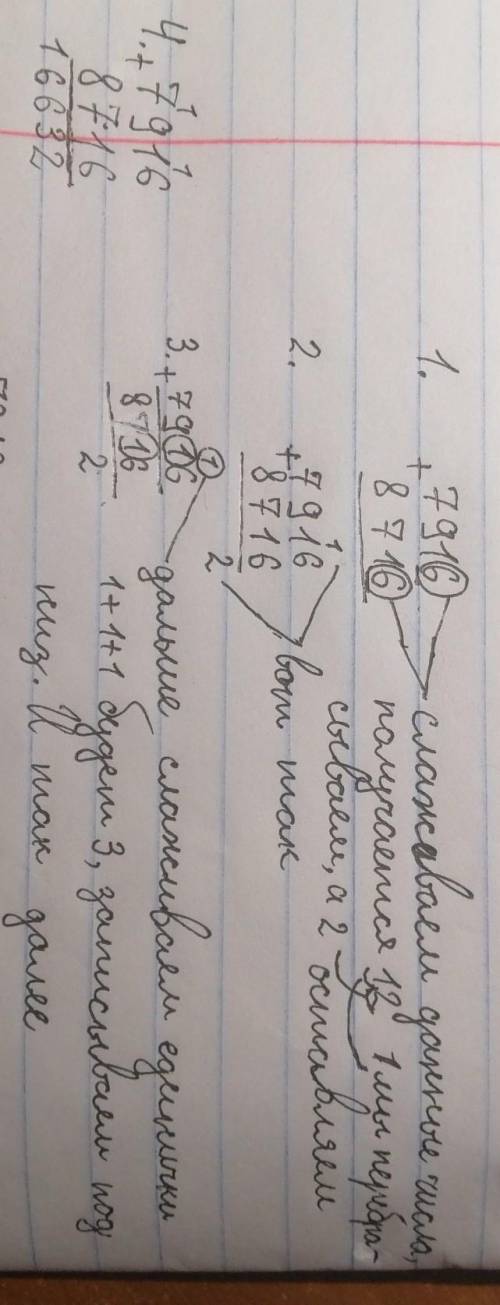 1. + 7916
8716
слаживаем данные числа,
получается 12 1 мы перебра-
сываем, а 2 оставляем
2. 1
+ 7916
8716
2
вот так
3. 1
+ 7916
8716
2
дальше слаживаем единички
1+1+1 будет 3, записываем под
низ. И так далее
4. 1 1
+ 7916
8716
16632